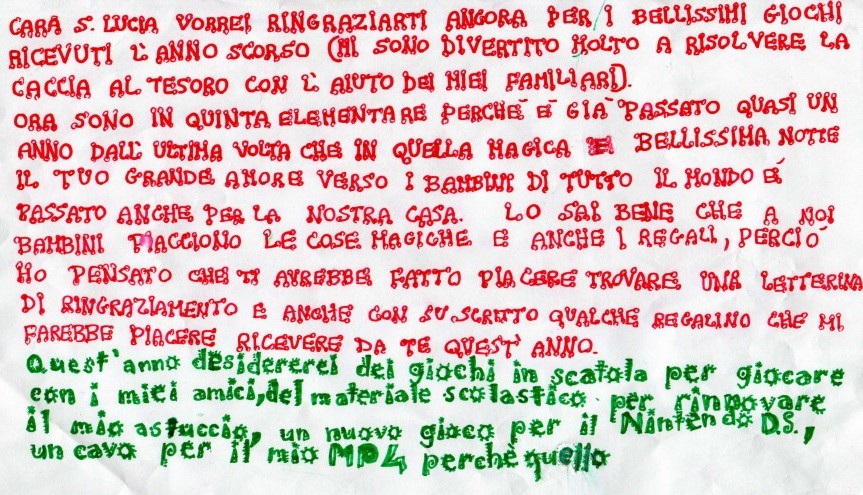 CARA S. LUCIA VORREI RINGRAZIARTI ANCORA PER I BELLISSIMI GIOCHI
RICEVUTI L'ANNO SCORSO (MI SONO DIVERTITO MOLTO A RISOLVERE LA
CACCIA AL TESORO CON L'AIUTO DEI MIEI FAMILIARI).
ORA SONO IN QUINTA ELEMENTARE PERCHE' E' GIA' PASSATO QUASI UN
ANNO DALL'ULTIMA VOLTA CHE IN QUELLA MAGICA E BELLISSIMA NOTTE
IL TUO GRANDE AMORE VERSO I BAMBINI DI TUTTO IL MONDO E'
PASSATO ANCHE PER LA NOSTRA CASA. LO SAI BENE CHE A NOI
BAMBINI PIACCIONO LE COSE MAGICHE E ANCHE I REGALI, PERCIO'
HO PENSATO CHE TI AVREBBE FATTO PIACERE TROVARE UNA LETTERINA
DI RINGRAZIAMENTO E ANCHE CON SU SCRITTO QUALCHE REGALINO CHE MI
FAREBBE PIACERE RICEVERE DA TE QUEST'ANNO.
Quest'anno desidererei dei giochi in scatola per giocare
con i miei amici, del materiale scolastico per rinnovare
il mio astuccio, un nuovo gioco per il Nintendo D.S.,
un cavo per il mio MP4 perchè quello